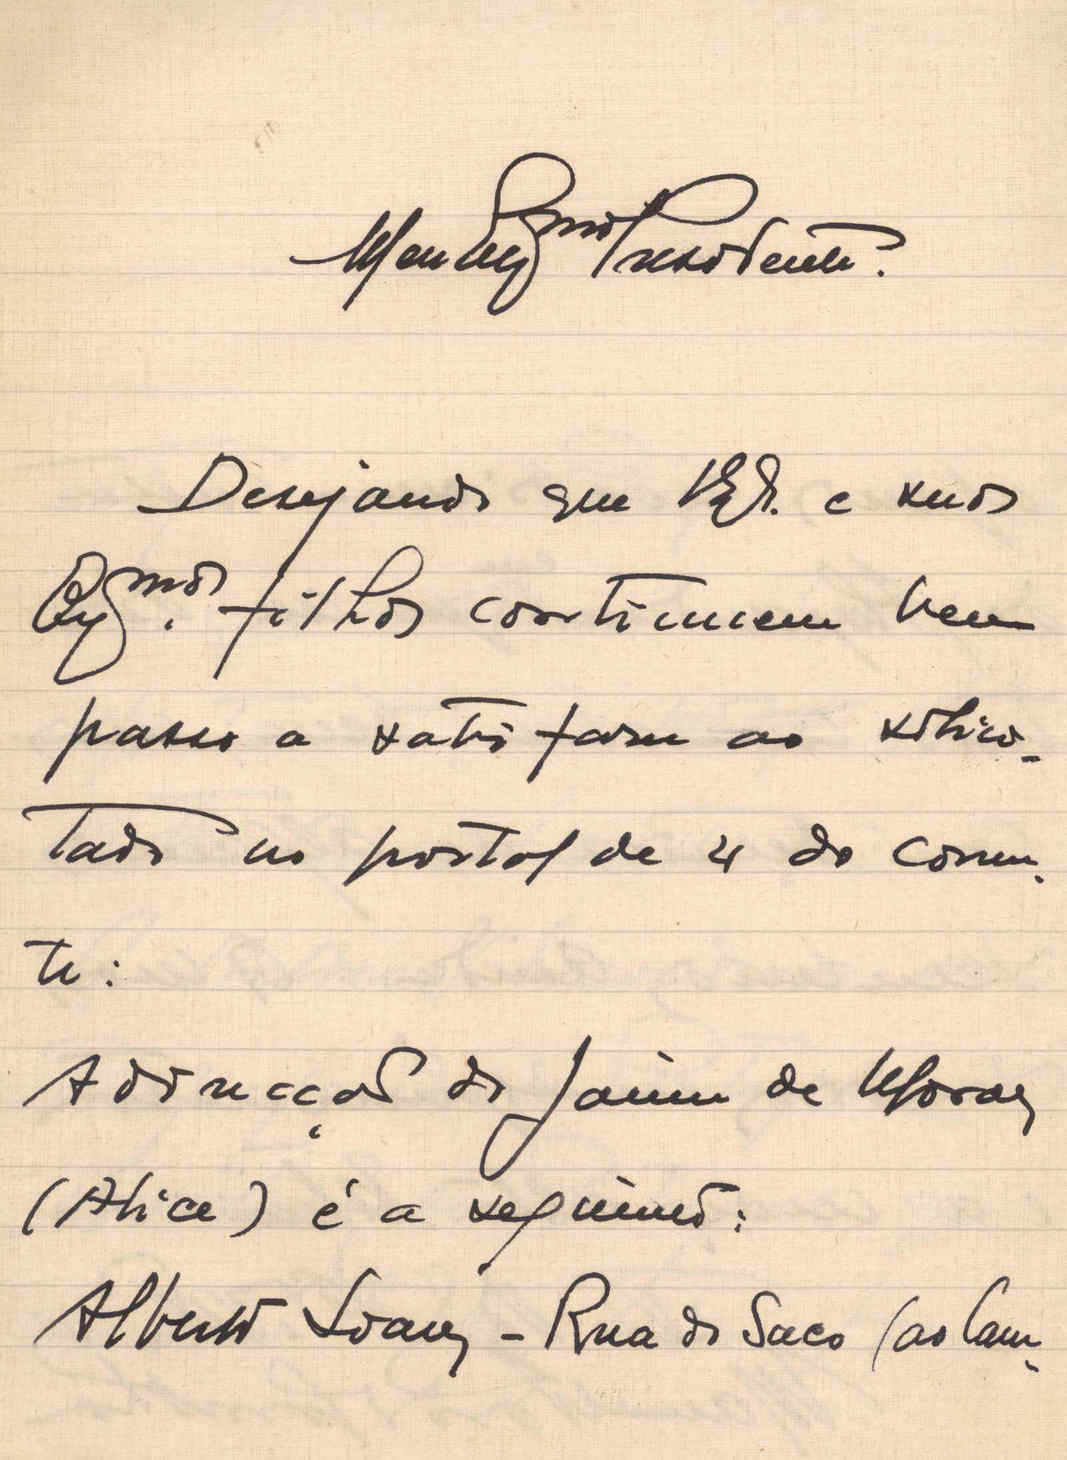 Meu Exmo Presidente.
Desejando que V. Ex. e seus
Exmos. filhos continuem bem
passo a satisfazer ao solici-
tado no postal de 4 do corren-
te:
A direcção do Jaime de Moraes
(Alice) é a seguinte:
Alberto Soares - Rua do Saco (ao Cam-